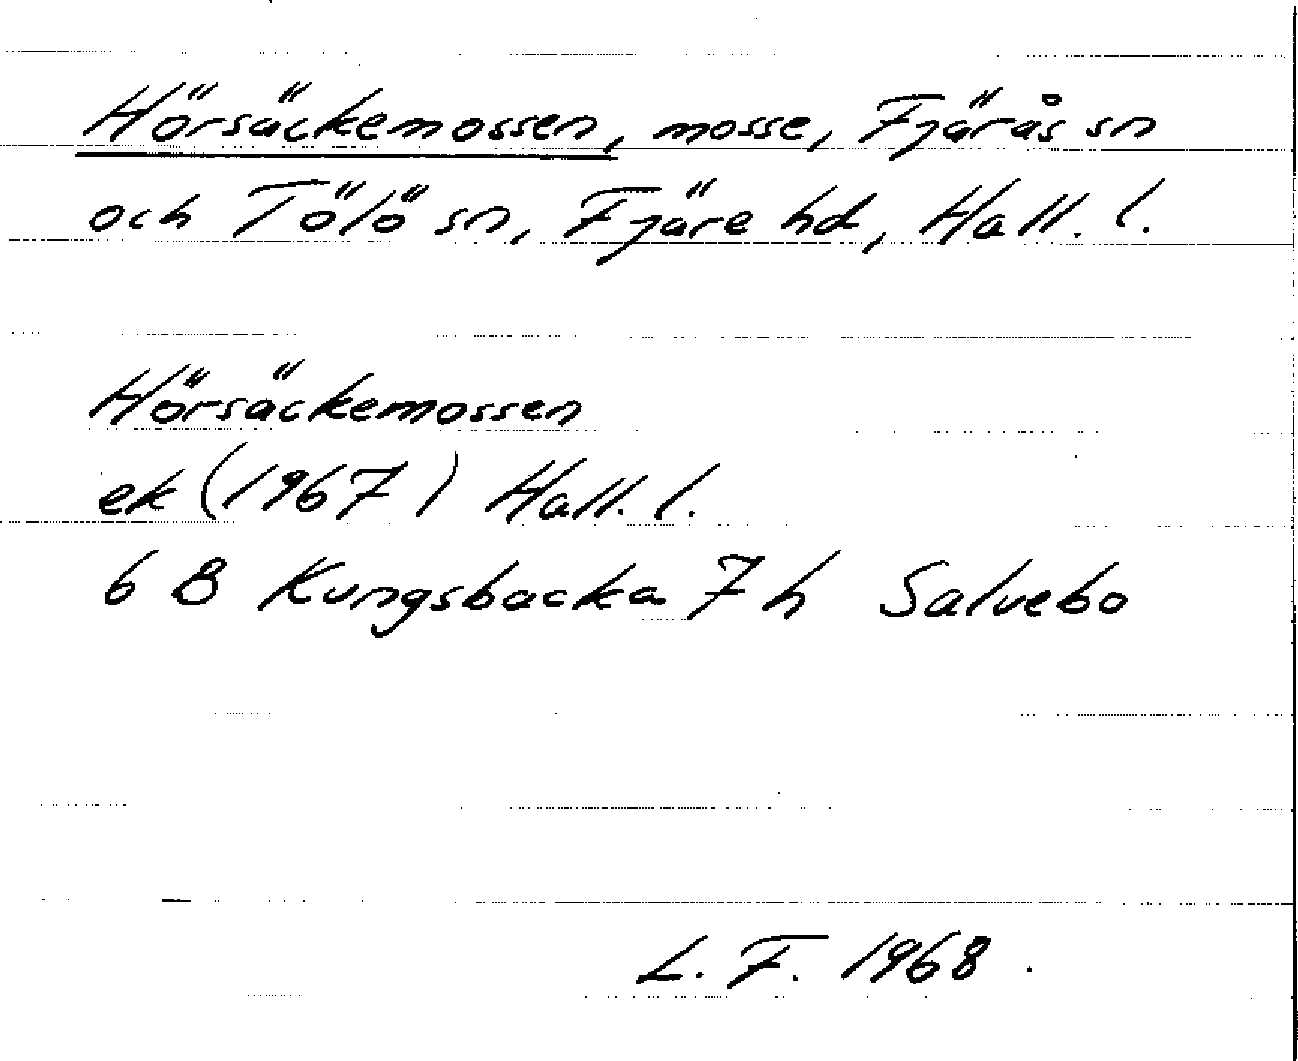 Hörsäckemossen, mosse, Fjärås sn
och Tölö sn, Fjäre hd, Hall. l.
Hörsäckemossen
ek (1967) Hall. l.
6 B Kungsbacka 7 h Salvebo
L. F. 1968.